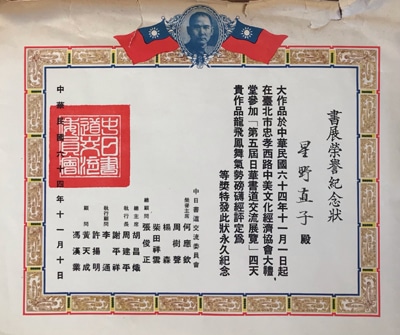 書展榮譽紀念狀
星野直子 殿
大作品於中華民國六十四年十一月一日起，
在臺北市忠孝西路中美文化經濟協會大禮
堂參加「第五屆日華書道交流展覽」四天
貴作品龍飛鳳舞氣勢磅礴經評定為
等獎特發此狀永久紀念
中日書道交流委員會
榮譽主席 何應欽
周樹聲
楊森
柴田祥雲
總顧問 張俊正
總主席 胡昌熾
執行長 周建平
謝平祥
執行顧問 李通
許揚明
顧問 黃天成
馮漢業
中華民國六十四年十一月十日
中日書
道交流
委員會